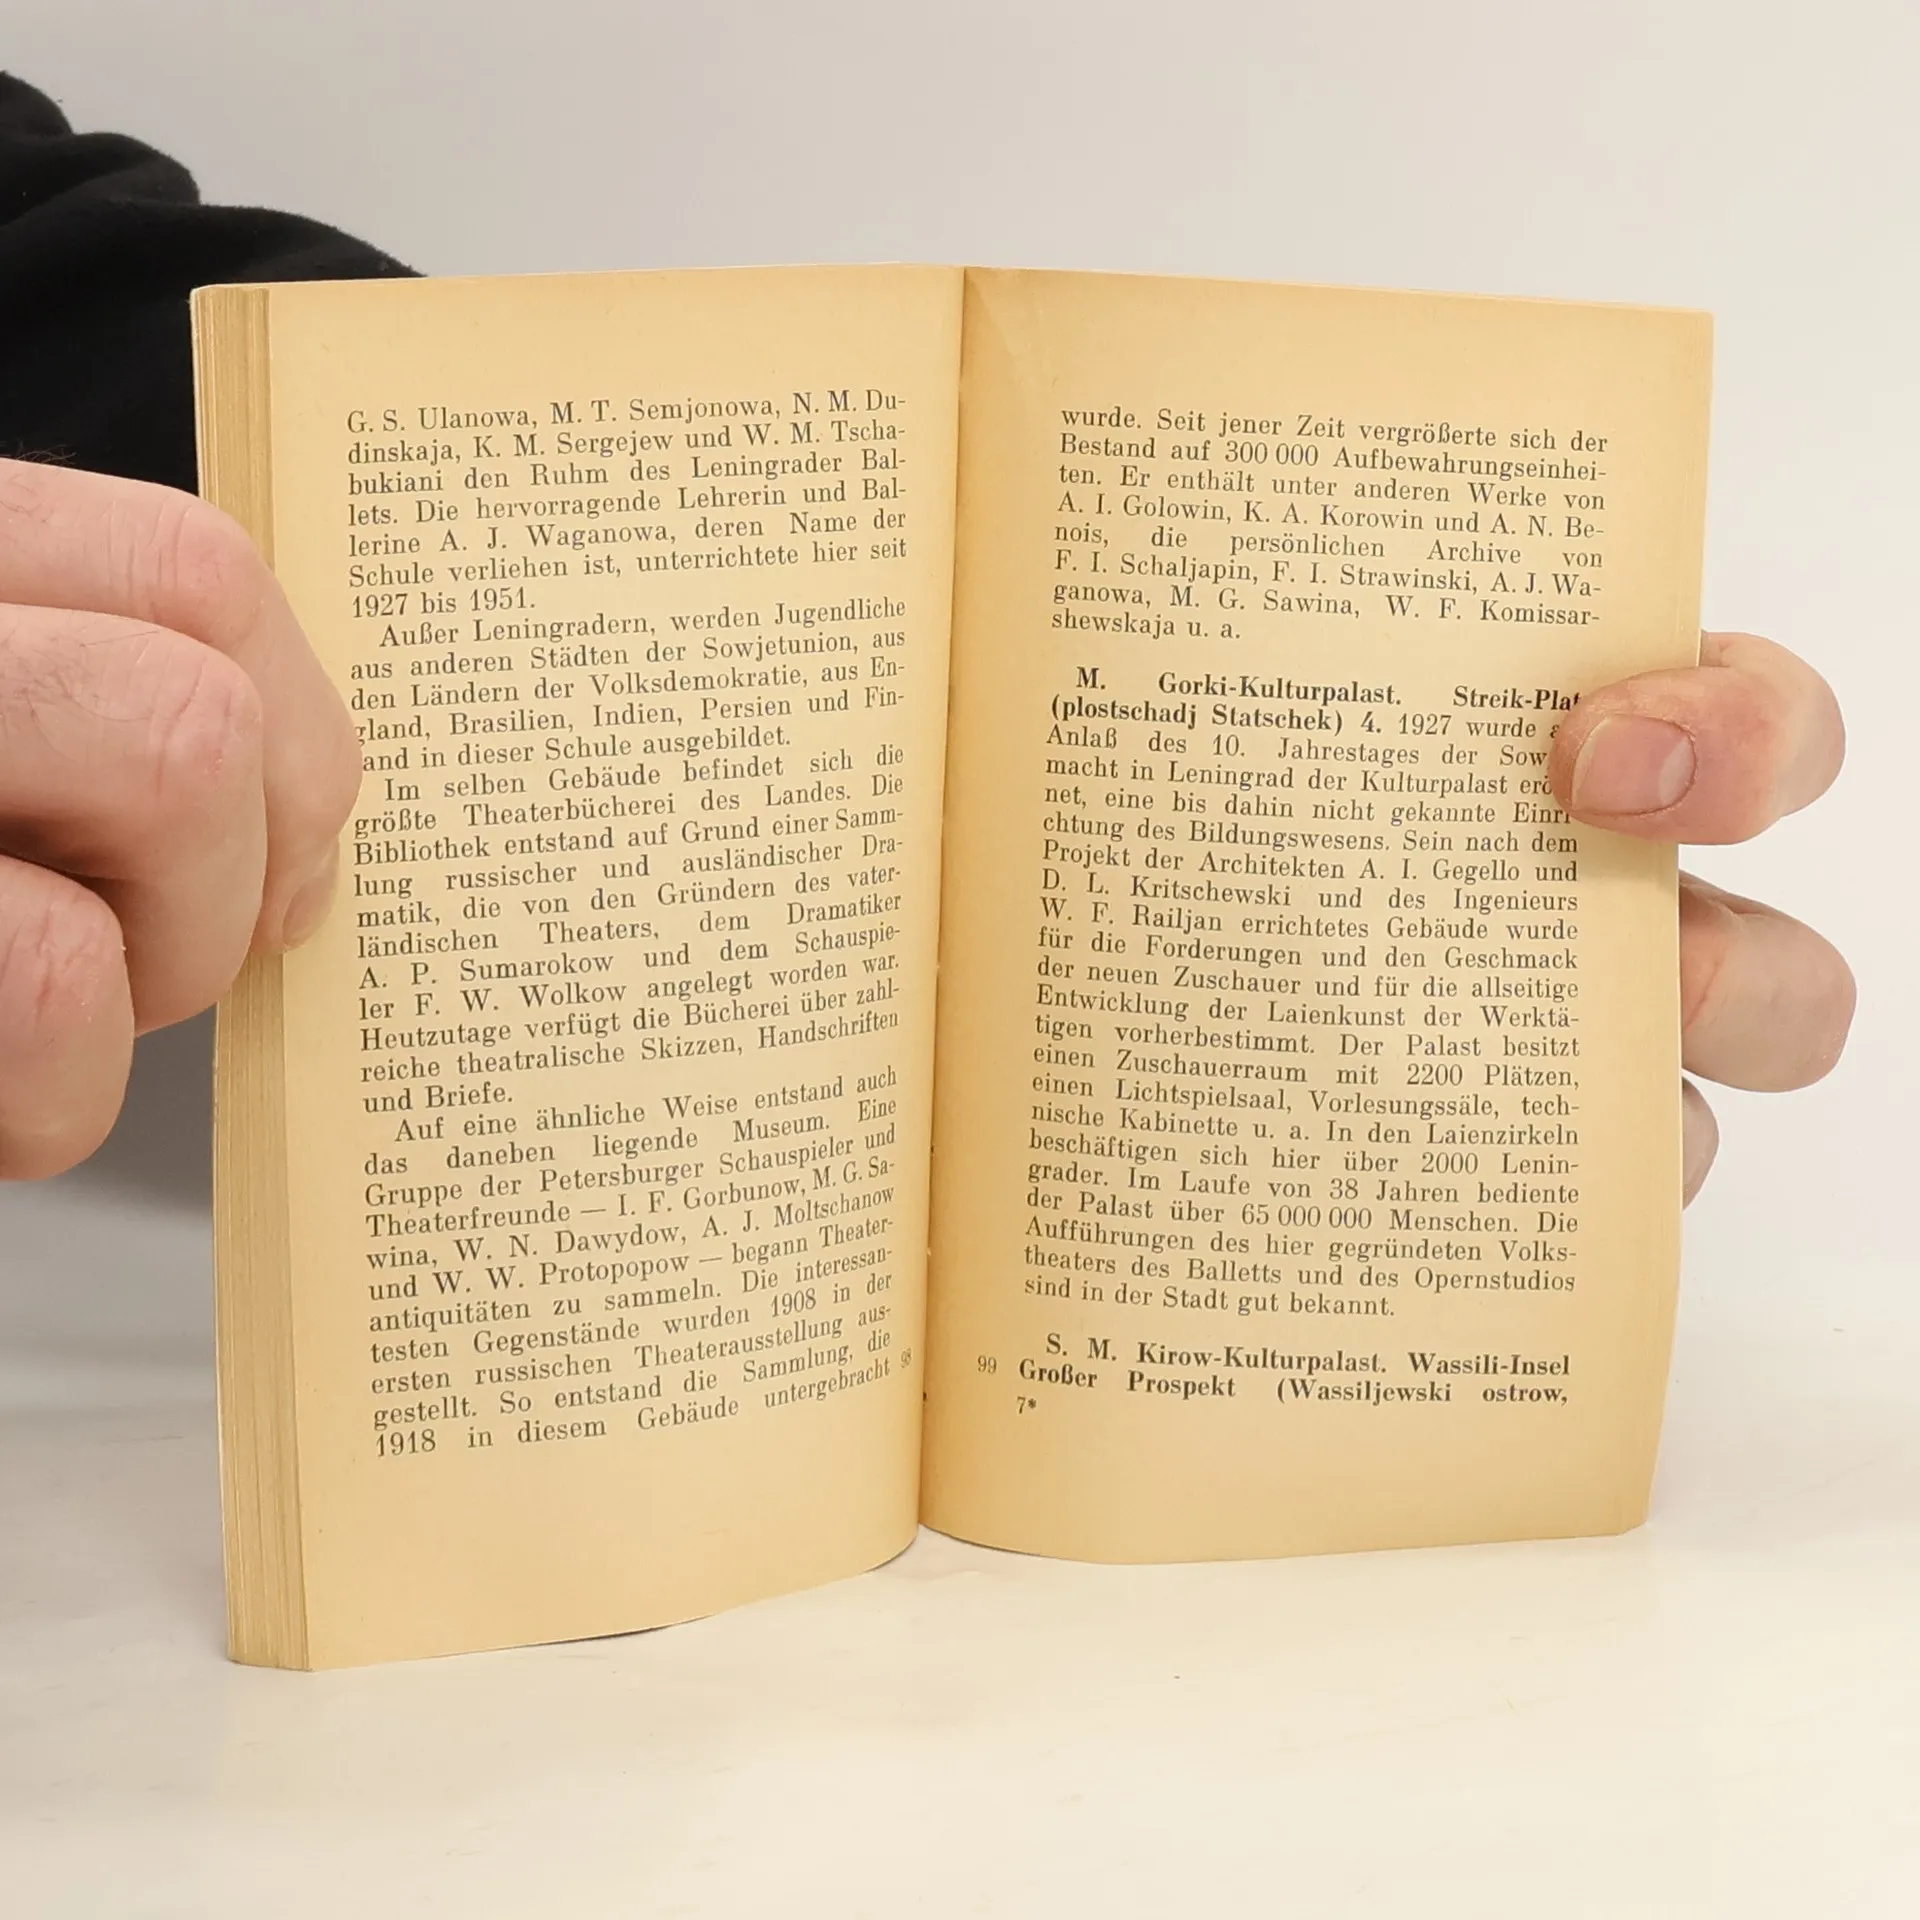 G. S. Ulanowa, M. T. Semjonowa, N. M. Du-
dinskaja, K. M. Sergejew und W. M. Tscha-
bukiani den Ruhm des Leningrader Bal-
lets. Die hervorragende Lehrerin und Bal-
lerine A. J. Waganowa, deren Name der
Schule verliehen ist, unterrichtete hier seit
1927 bis 1951.
Außer Leningradern, werden Jugendliche
aus anderen Städten der Sowjetunion, aus
den Ländern der Volksdemokratie, aus En-
gland, Brasilien, Indien, Persien und Fin-
land in dieser Schule ausgebildet.
Im selben Gebäude befindet sich die
größte Theaterbücherei des Landes. Die
Bibliothek entstand auf Grund einer Samm-
lung russischer und ausländischer Dra-
matik, die von den Gründern des vater-
ländischen Theaters, dem Dramatiker
A. P. Sumarokow und dem Schauspie-
ler F. W. Wolkow angelegt worden war.
Heutzutage verfügt die Bücherei über zahl-
reiche theatralische Skizzen, Handschriften
und Briefe.
Auf eine ähnliche Weise entstand auch
das daneben liegende Museum. Eine
Gruppe der Petersburger Schauspieler und
Theaterfreunde — I. F. Gorbunow, M. G. Sa-
wina, W. N. Dawydow, A. J. Moltschanow
und W. W. Protopopow — begann Theater-
antiquitäten zu sammeln. Die interessan-
testen Gegenstände wurden 1908 in der
ersten russischen Theaterausstellung aus-
gestellt. So entstand die Sammlung, die
1918 in diesem Gebäude untergebracht
98
wurde. Seit jener Zeit vergrößerte sich der
Bestand auf 300 000 Aufbewahrungseinhei-
ten. Er enthält unter anderen Werke von
A. I. Golowin, K. A. Korowin und A. N. Be-
nois, die persönlichen Archive von
F. I. Schaljapin, F. I. Strawinski, A. J. Wa-
ganowa, M. G. Sawina, W. F. Komissar-
shewskaja u. a.
M. Gorki-Kulturpalast. Streik-Plat
(plostschadj Statschek) 4. 1927 wurde
Anlaß des 10. Jahrestages der Sow
macht in Leningrad der Kulturpalast erö
net, eine bis dahin nicht gekannte Einri
chtung des Bildungswesens. Sein nach dem
Projekt der Architekten A. I. Gegello und
D. L. Kritschewski und des Ingenieurs
W. F. Railjan errichtetes Gebäude wurde
für die Forderungen und den Geschmack
der neuen Zuschauer und für die allseitige
Entwicklung der Laienkunst der Werktä-
tigen vorherbestimmt. Der Palast besitzt
einen Zuschauerraum mit 2200 Plätzen,
einen Lichtspielsaal, Vorlesungssäle, tech-
nische Kabinette u. a. In den Laienzirkeln
beschäftigen sich hier über 2000 Lenin-
grader. Im Laufe von 38 Jahren bediente
der Palast über 65 000 000 Menschen. Die
Aufführungen des hier gegründeten Volks-
theaters des Balletts und des Opernstudios
sind in der Stadt gut bekannt.
S. M. Kirow-Kulturpalast. Wassili-Insel
Großer Prospekt (Wassiljewski ostrow,
99
7*